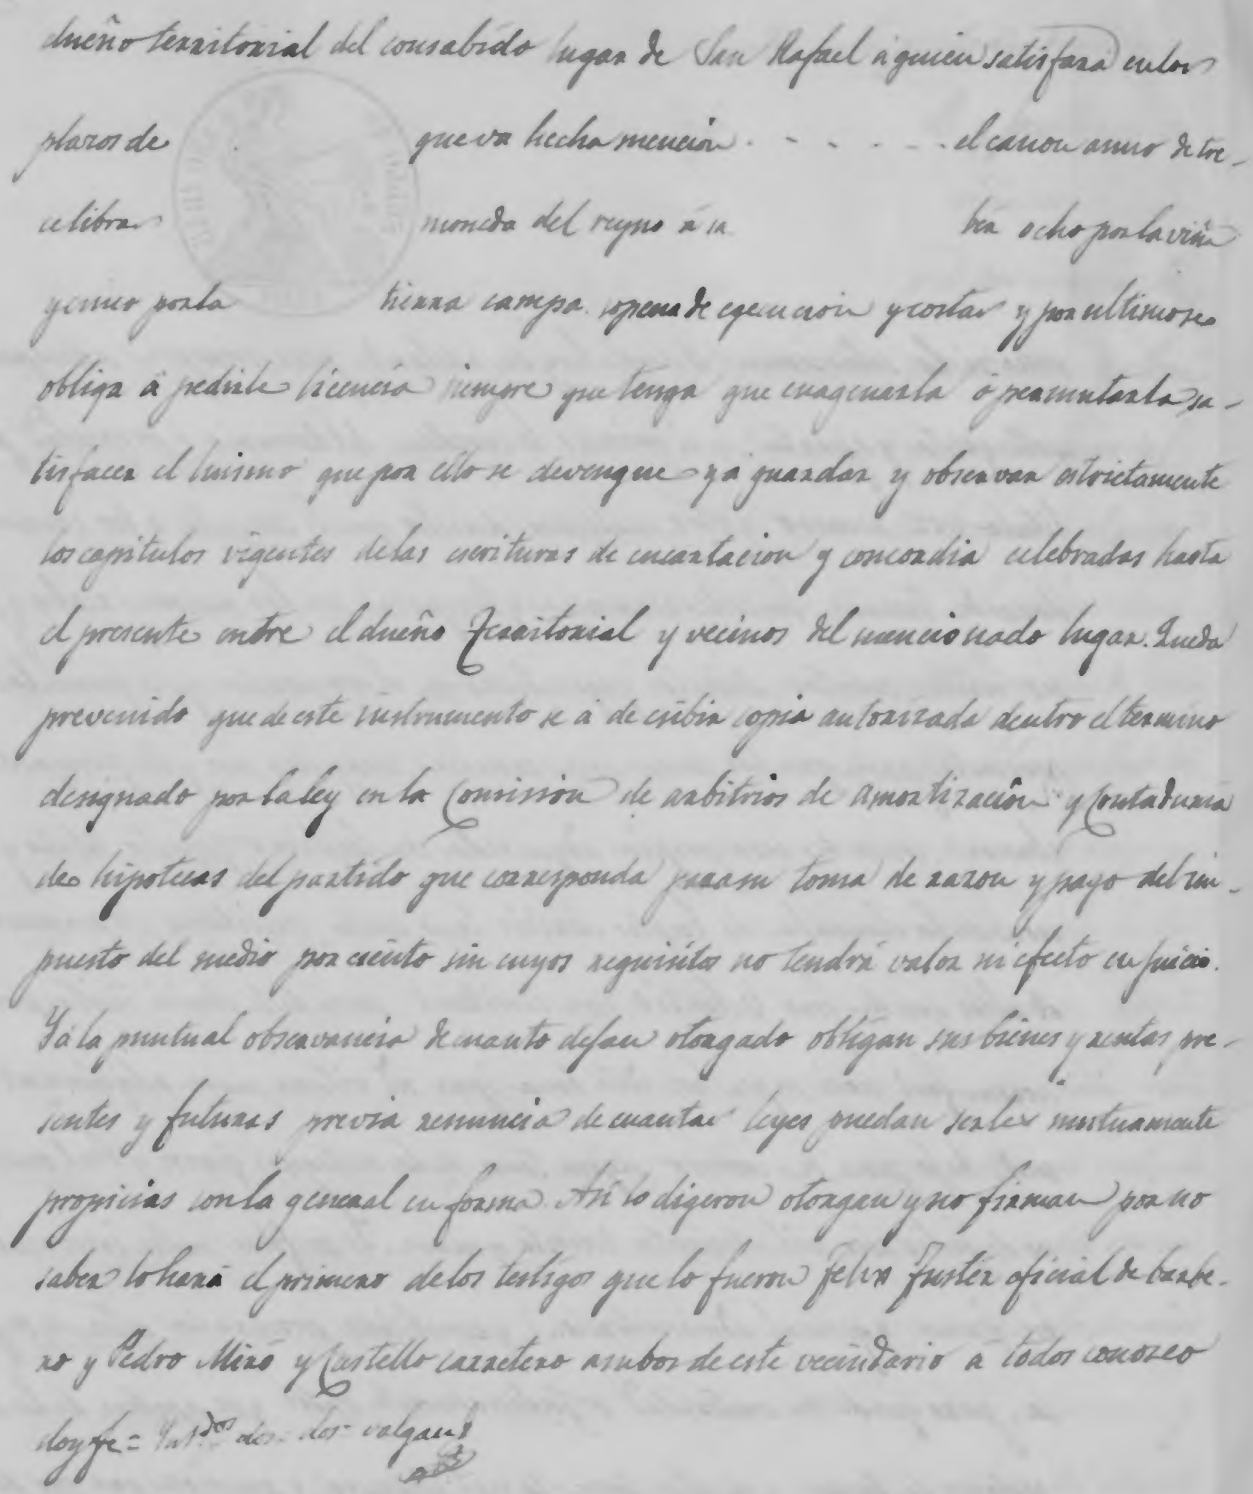 dueño territorial del consabido lugar de San Rafael á quien satisfara en los
plazos de que va hecha mencion . - - . . . . el canon anuo de tre-
ce libras moneda del reyno á sa ber ocho por la viña
y cinco por la tierra campa sopena de egecucion y costas y por ultimo se
obliga á pedirle licencia siempre que tenga que enagenarla ó permutarla, sa-
tisfacer el luismo que por ello se devengue y á guardar y observar estrictamente
los capitulos vigentes de las escrituras de encartacion y concordia celebradas hasta
el presente entre el dueño Territorial y vecinos del mencionado lugar. Queda
prevenido que de este instrumento se á de esibir copia autorizada dentro el termino
designado por la ley en la Comision de arbitrios de amortizacion y Contaduria
de hipotecas del partido que corresponda para su toma de razon y pago del im-
puesto del medio por ciento sin cuyos requisitos no tendrá valor ni efecto en juicio.
Y á la puntual observancia de cuanto dejan otorgado obligan sus bienes y rentas pre-
sentes y futuras previa renuncia de cuantas leyes puedan serles mutuamente
propicias con la general en forma. Así lo digeron otorgan y no firman por no
saber lo hará el primero de los testigos que lo fueron Felix Fuster oficial de barbe-
ro y Pedro Miró y Castello carretero ambos de este vecindario á todos conozco
doy fe = dos= dos= valgan